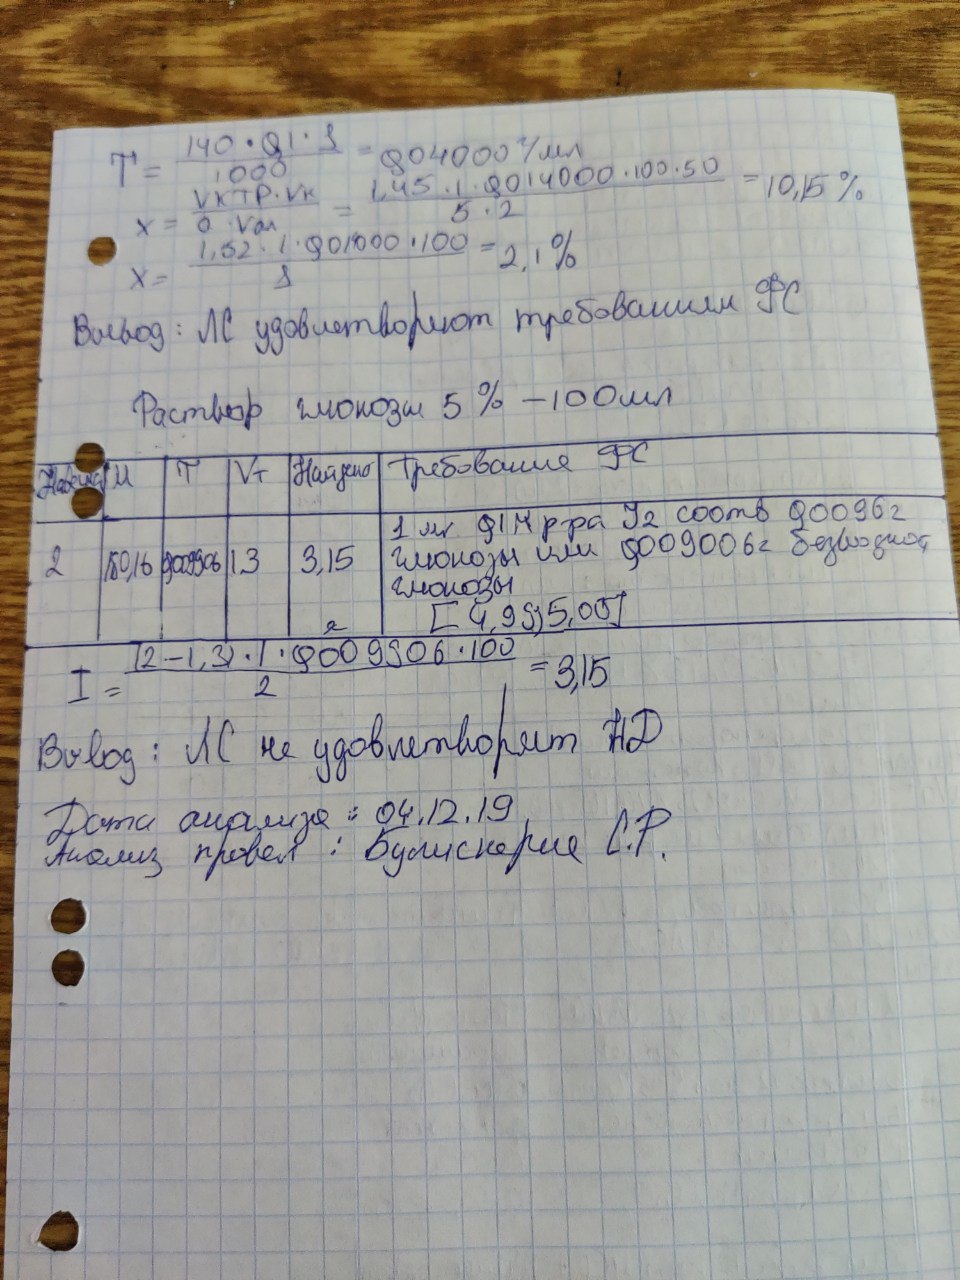 T = 140 · 0,1 · 1 / 1000 = 0,04000 г/мл
x = VКТР·Vк / a · Vал = 1,45 · 1 · 0,014000 · 100 · 50 / 5 · 2 = 10,15 %
x = 1,52 · 1 · 0,01000 · 100 / 1 = 2,1%
Вывод: ЛС удовлетворяют требованиям ФС
Раствор глюкозы 5 % – 100 мл
Навеска М Т Vт Найдено Требование ФС
2 180,16 0,009906 1,3 3,15 1 мл 0,1 Н р-ра У2 соотв 0,0096 г
глюкозы или 0,009006 г безводной
глюкозы
[4,95; 5,05]
I = (2 – 1,3) · 1 · 0,009906 · 100 / 2 = 3,15
Вывод: ЛС не удовлетворят НД
Дата анализа: 04.12.19
Анализ провел: С.Р.